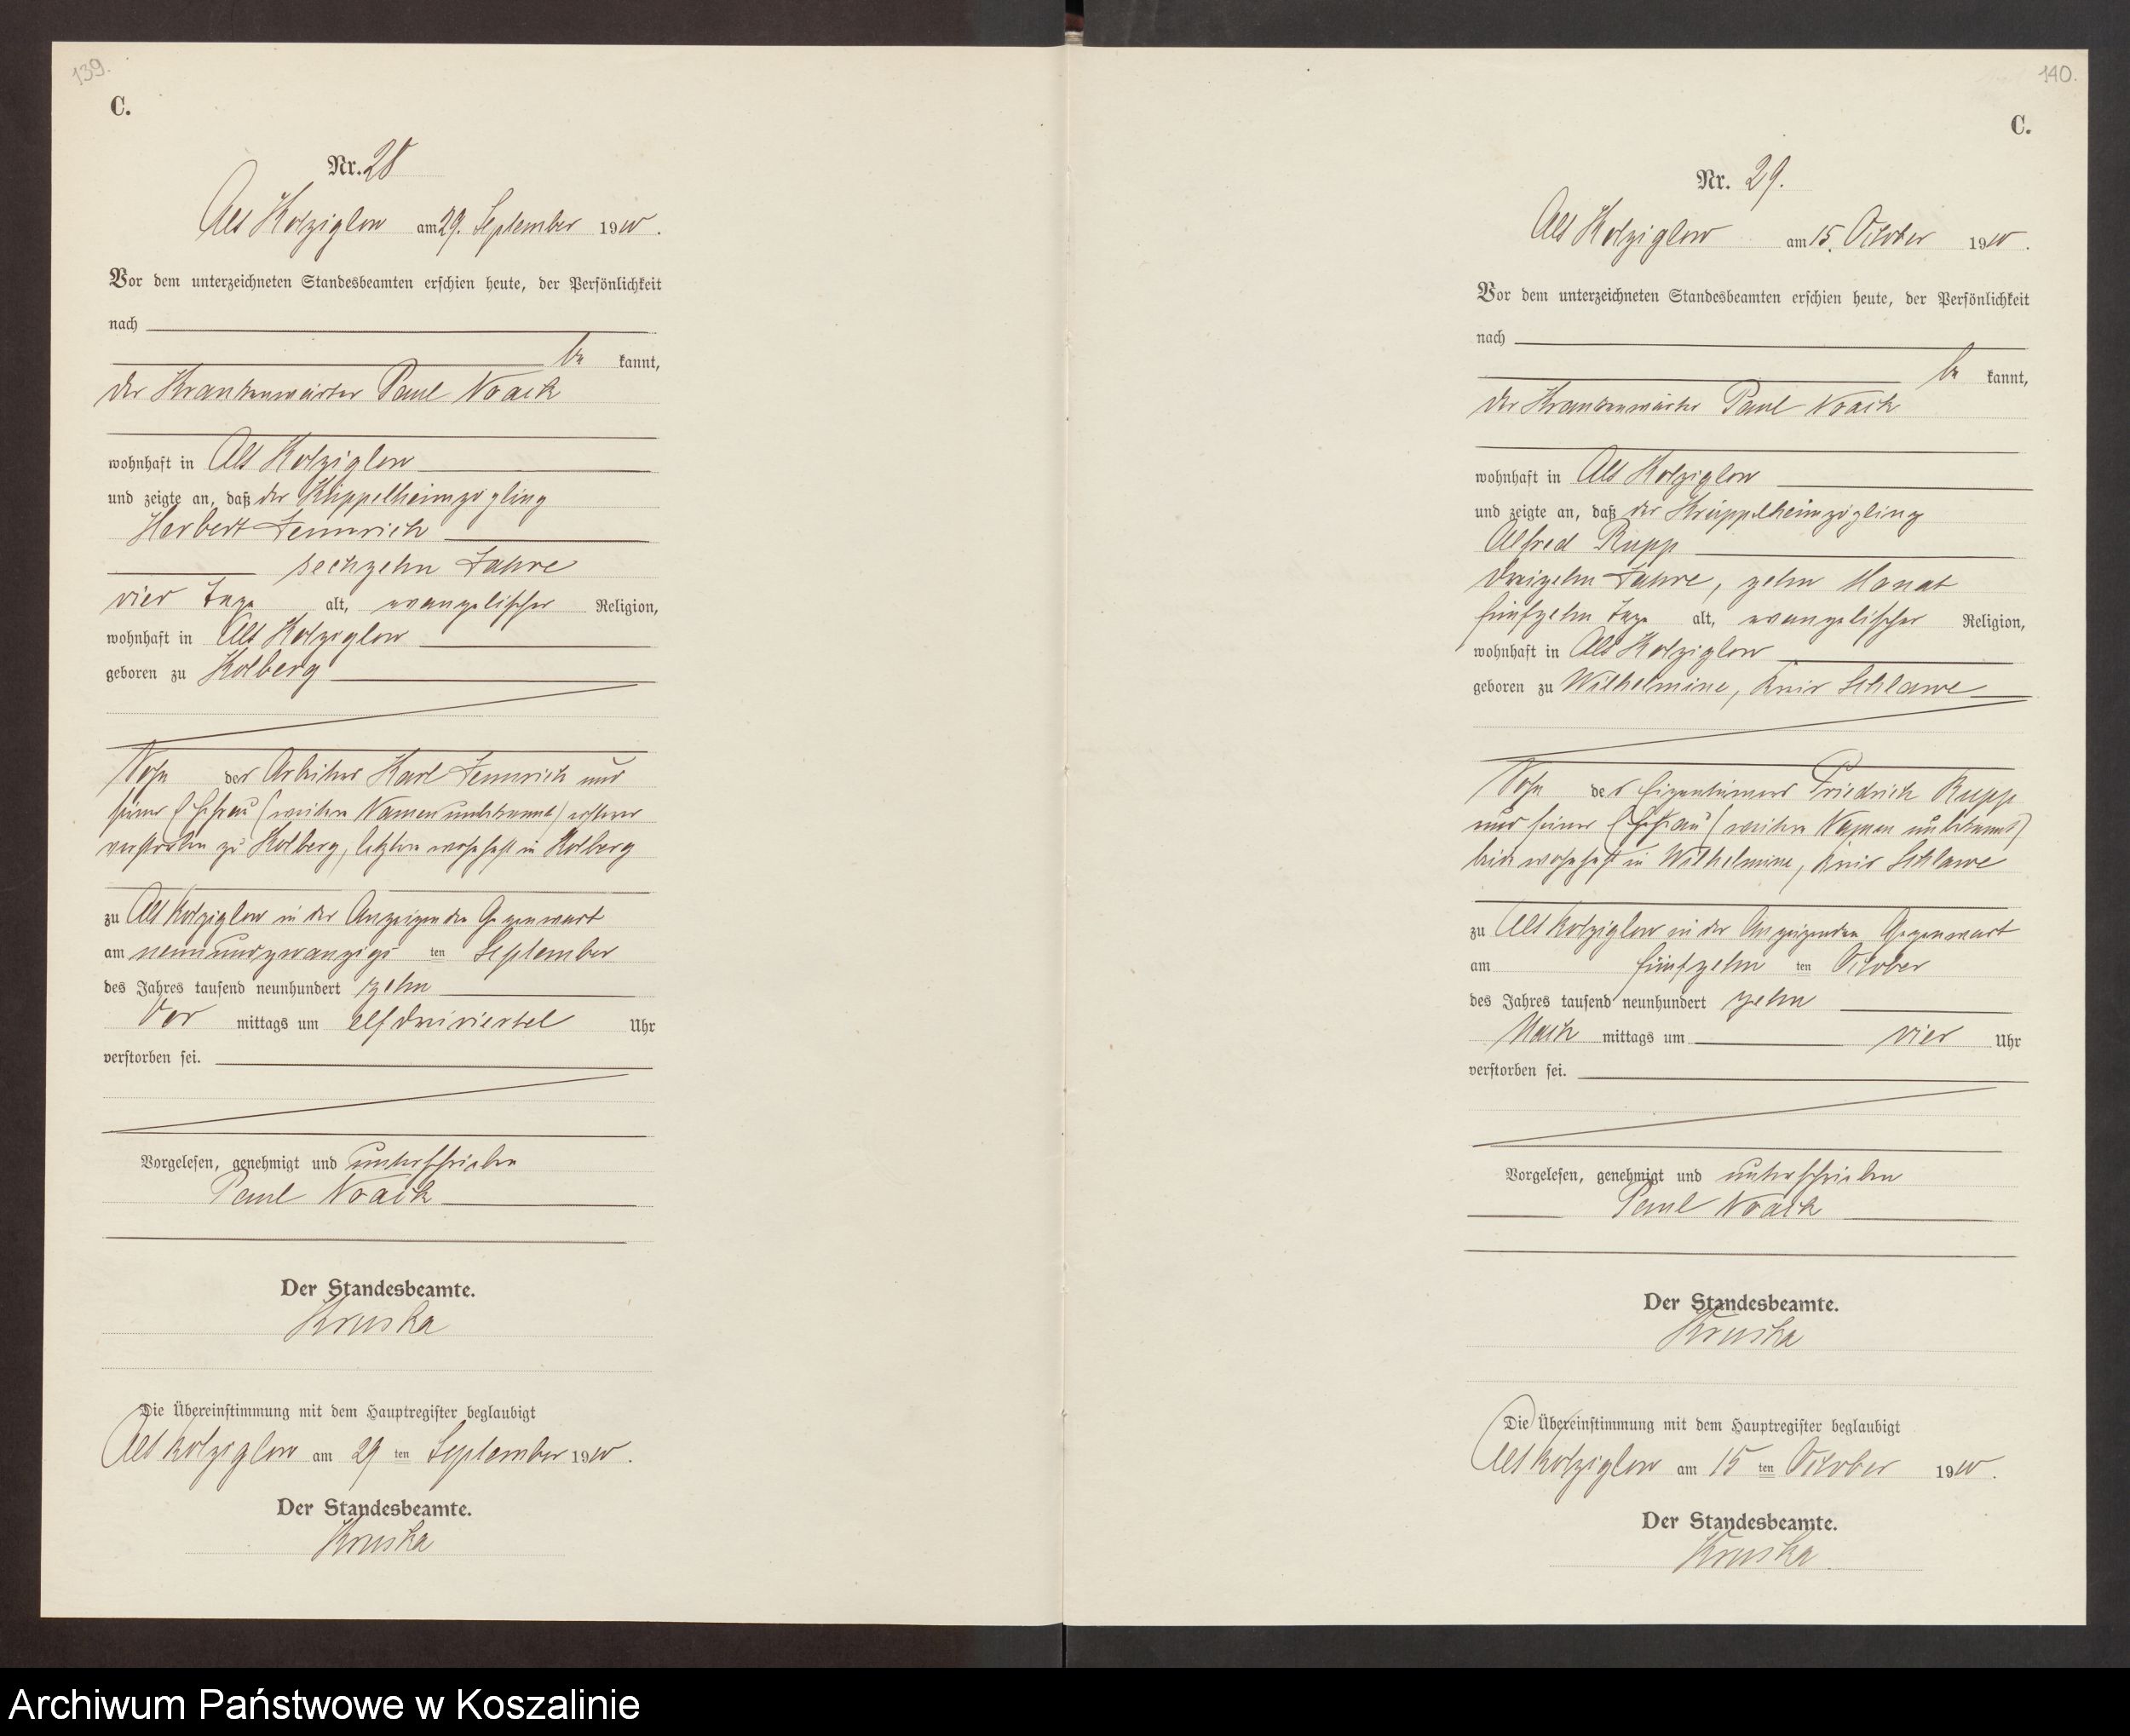 139.
C.
Nr. 28
Alt Kolziglow am 29. September 1910.
Vor dem unterzeichneten Standesbeamten erschien heute, der Persönlichkeit
nach
be kannt,
der Krankenwärter Paul Noack
wohnhaft in Alt Kolziglow
und zeigte an, daß der Krüppelheimzögling
Herbert Jennrich
sechzehn Jahre
vier Tage alt, evangelischer Religion,
wohnhaft in Alt Kolziglow
geboren zu Kolberg
Sohn des Arbeiters Karl Jennrich und
seiner Ehefrau (weitere Namen unbekannt) ersterer
verstorben zu Kolberg, letztere wohnhaft in Kolberg
zu Alt Kolziglow in des Anzeigenden Gegenwart
am neunundzwanzigs ten September
des Jahres tausend neunhundert zehn
Vor mittags um elf dreiviertel Uhr
verstorben sei.
Vorgelesen, genehmigt und unterschrieben
Paul Noack
Der Standesbeamte.
Kruska
Die Übereinstimmung mit dem Hauptregister beglaubigt
Alt Kolziglow am 29 ten September 1910.
Der Standesbeamte.
Kruska
140.
C.
Nr. 29.
Alt Kolziglow am 15. October 1910.
Vor dem unterzeichneten Standesbeamten erschien heute, der Persönlichkeit
nach
be kannt,
der Krankenwärter Paul Noack
wohnhaft in Alt Kolziglow
und zeigte an, daß der Krüppelheimzögling
Alfred Rupp
dreizehn Jahre, zehn Monat
fünfzehn Tage alt, evangelischer Religion,
wohnhaft in Alt Kolziglow
geboren zu Wilhelmine, Kreis Schlawe
Sohn des Eigentümers Friedrich Rupp
und seiner Ehefrau (weitere Namen unbekannt)
beide wohnhaft in Wilhelmine, Kreis Schlawe
zu Alt Kolziglow in des Anzeigenden Gegenwart
am fünfzehn ten October
des Jahres tausend neunhundert zehn
Nach mittags um vier Uhr
verstorben sei.
Vorgelesen, genehmigt und unterschrieben
Paul Noack
Der Standesbeamte.
Kruska
Die Übereinstimmung mit dem Hauptregister beglaubigt
Alt Kolziglow am 15 ten October 1910.
Der Standesbeamte.
Kruska
Archiwum Państwowe w Koszalinie